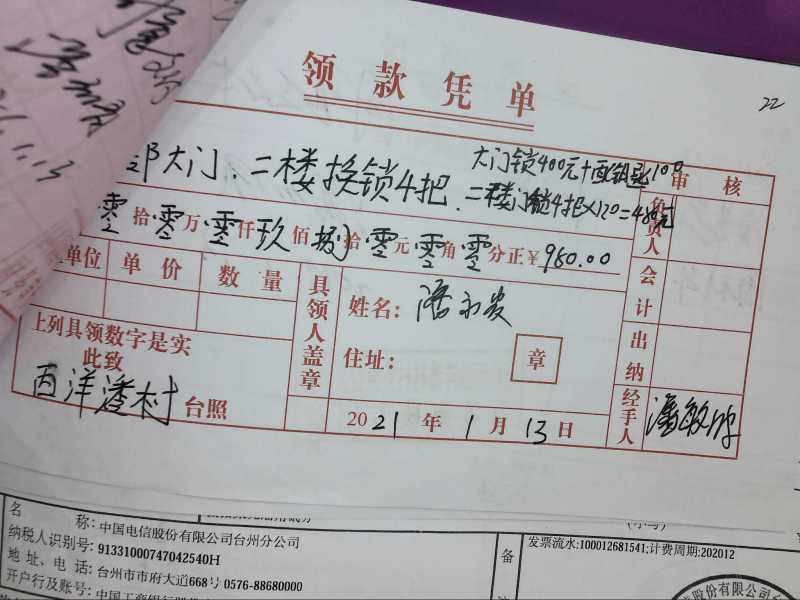 领款凭单
22
部大门、二楼换锁4把、
大门锁400元+配钥匙100
二楼门锁4把×120=480元
零拾零万零仟玖佰捌拾零元零角零分正¥980.00
单位 单价 数量
上列具领数字是实
此致
西洋潘村 台照
具领人盖章
姓名:潘
住址:
章
2021年1月13日
审核
负责人
会计
出纳
经手人 潘敏
1.13
名称:中国电信股份有限公司台州分公司
纳税人识别号:91331000747042540H
地址、电话:台州市市府大道668号 0576-88680000
开户行及账号:中国工商银行股份
备
发票流水:100012681541;计费周期:202012
股份有限公司